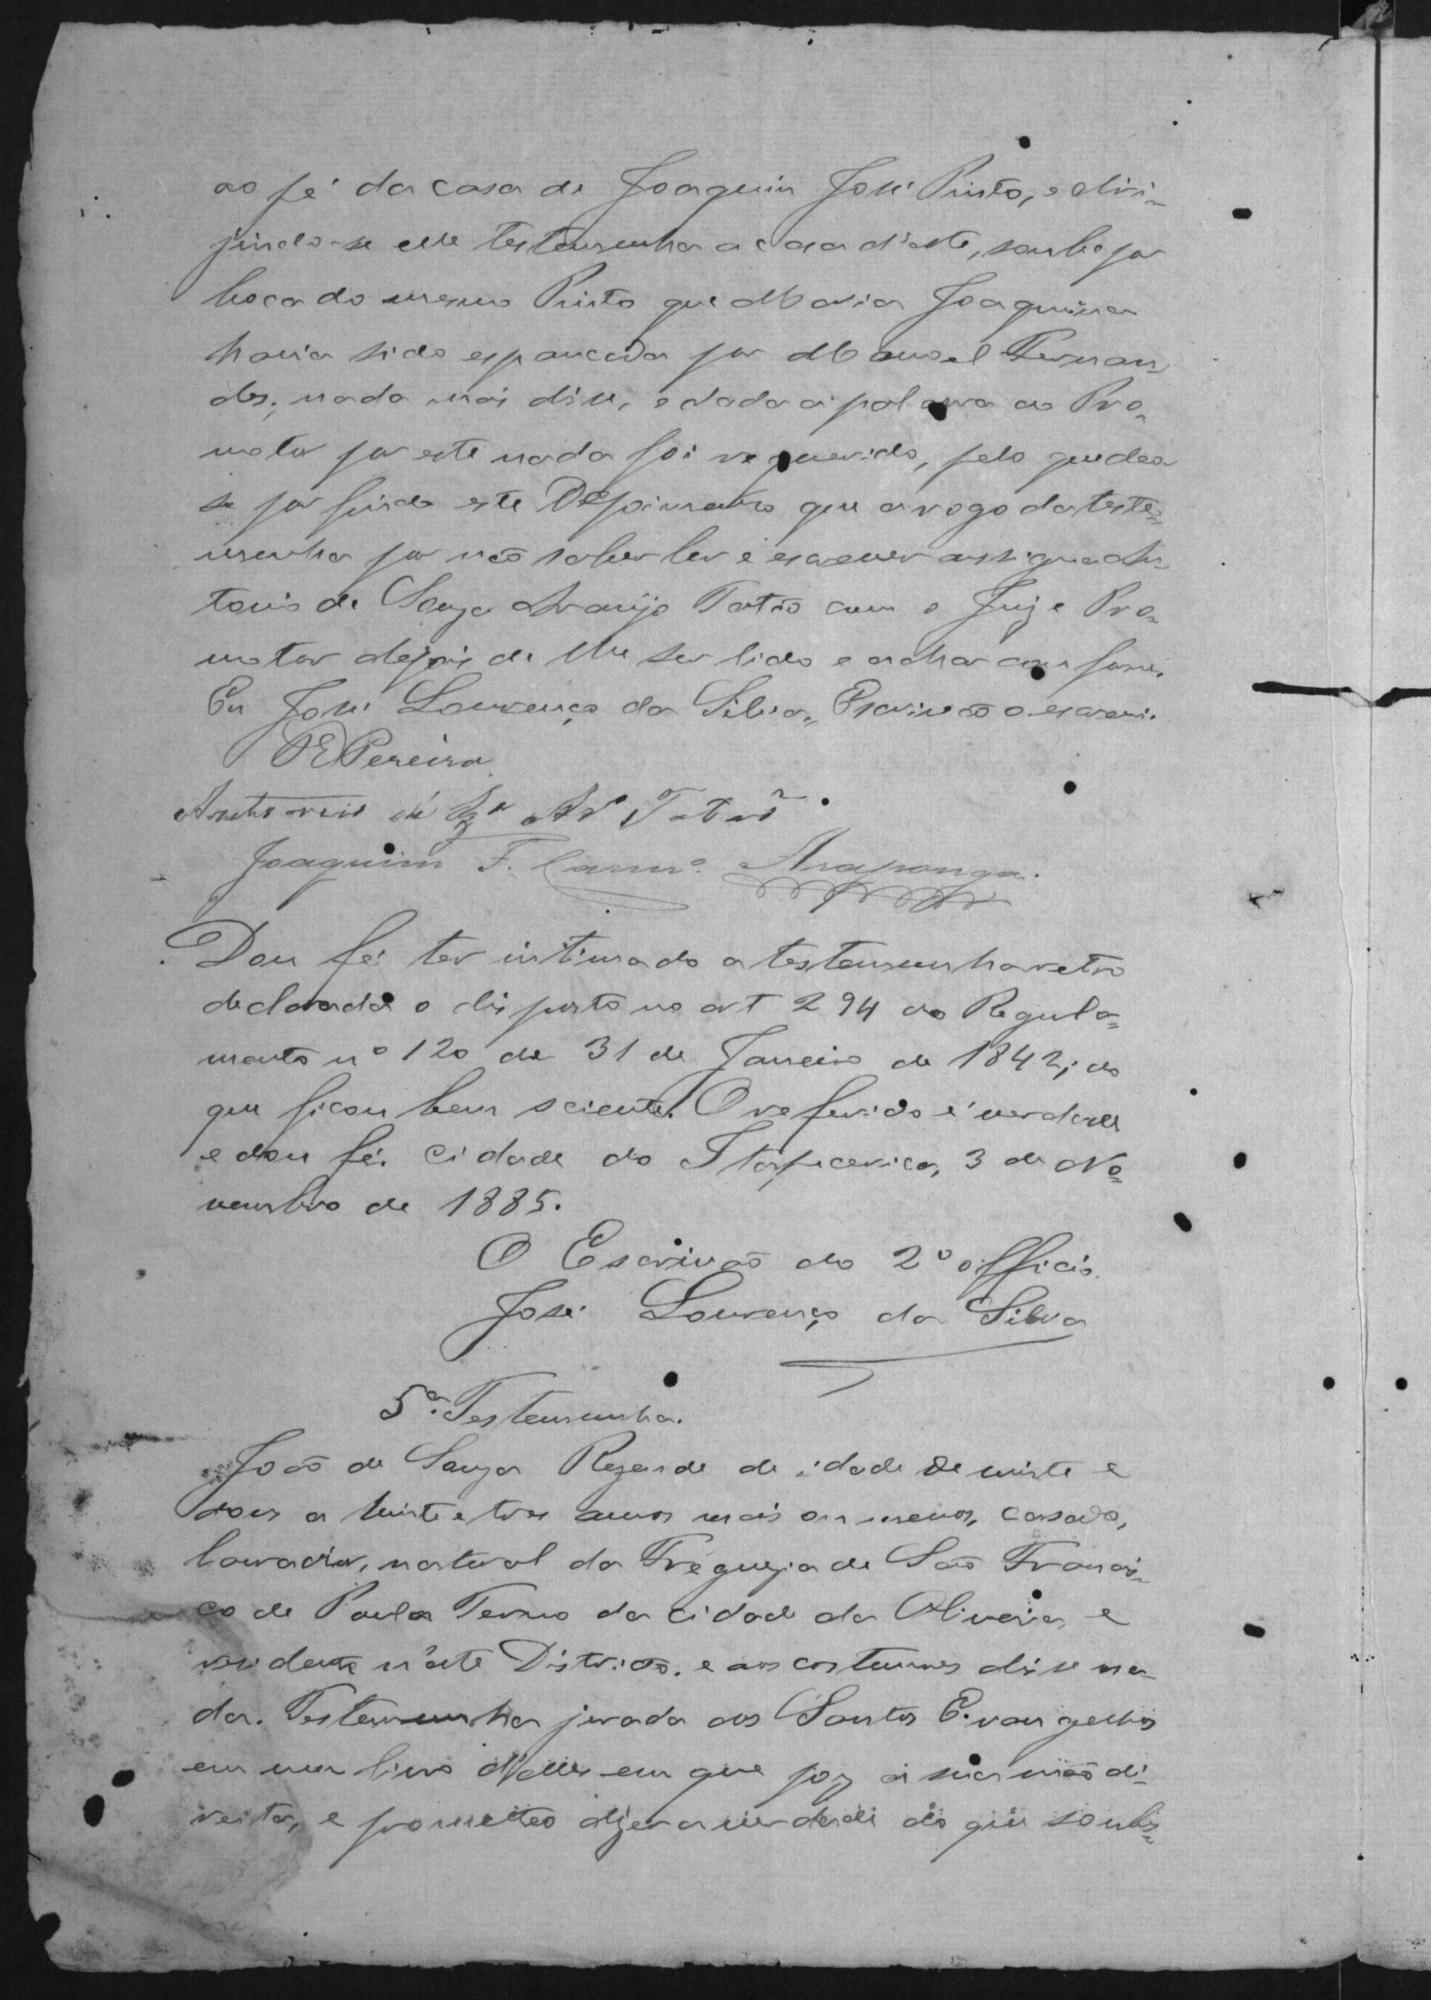 ao pé da casa de Joaquim José Pinto, e diri-
jindo-se elle testemunha a casa d'este, soube por
boca do mesmo Pinto que Maria Joaquina
havia sido espancada por Manoel Fernan-
des; nada mais disse, e dada a palavra ao Pro-
motor por este nada foi requerido, pelo que deo
se por findo este Depoimento que a rogo da teste-
munha por não saber ler e escrever assigna An-
tonio de Souza Araujo Tatão com o Juiz e Pro-
motor depois de lhe ser lido e achar conforme.
Eu José Lourenço da Silva, Escrivão o escrevi.
Pereira
Antonio de Sza Ar.º Tatão
Joaquim F. Carn.º Araponga.
Dou fé ter intimado a testemunha retro
declarada o disposto no art 294 do Regula-
mento nº 120 de 31 de Janeiro de 1842; do
que ficou bem sciente. O referido é verdade
e dou fé. Cidade do Itapecerica, 3 de No-
vembro de 1885.
O Escrivão do 2º officio
José Lourenço da Silva
5ª. Testemunha.
João de Souza Rezende de idade de vinte e
dous a vinte e tres annos mais ou menos, casado,
lavrador, natural da Freguezia de São Francis-
co de Paula Termo da cidade da Oliveira, e
residente n'este Districto. e aos costumes disse na-
da. Testemunha jurada aos Santos Evangelhos
em um livro d'elles em que poz a sua mão di-
reita, e prometteo dizer a verdade do que soubes-